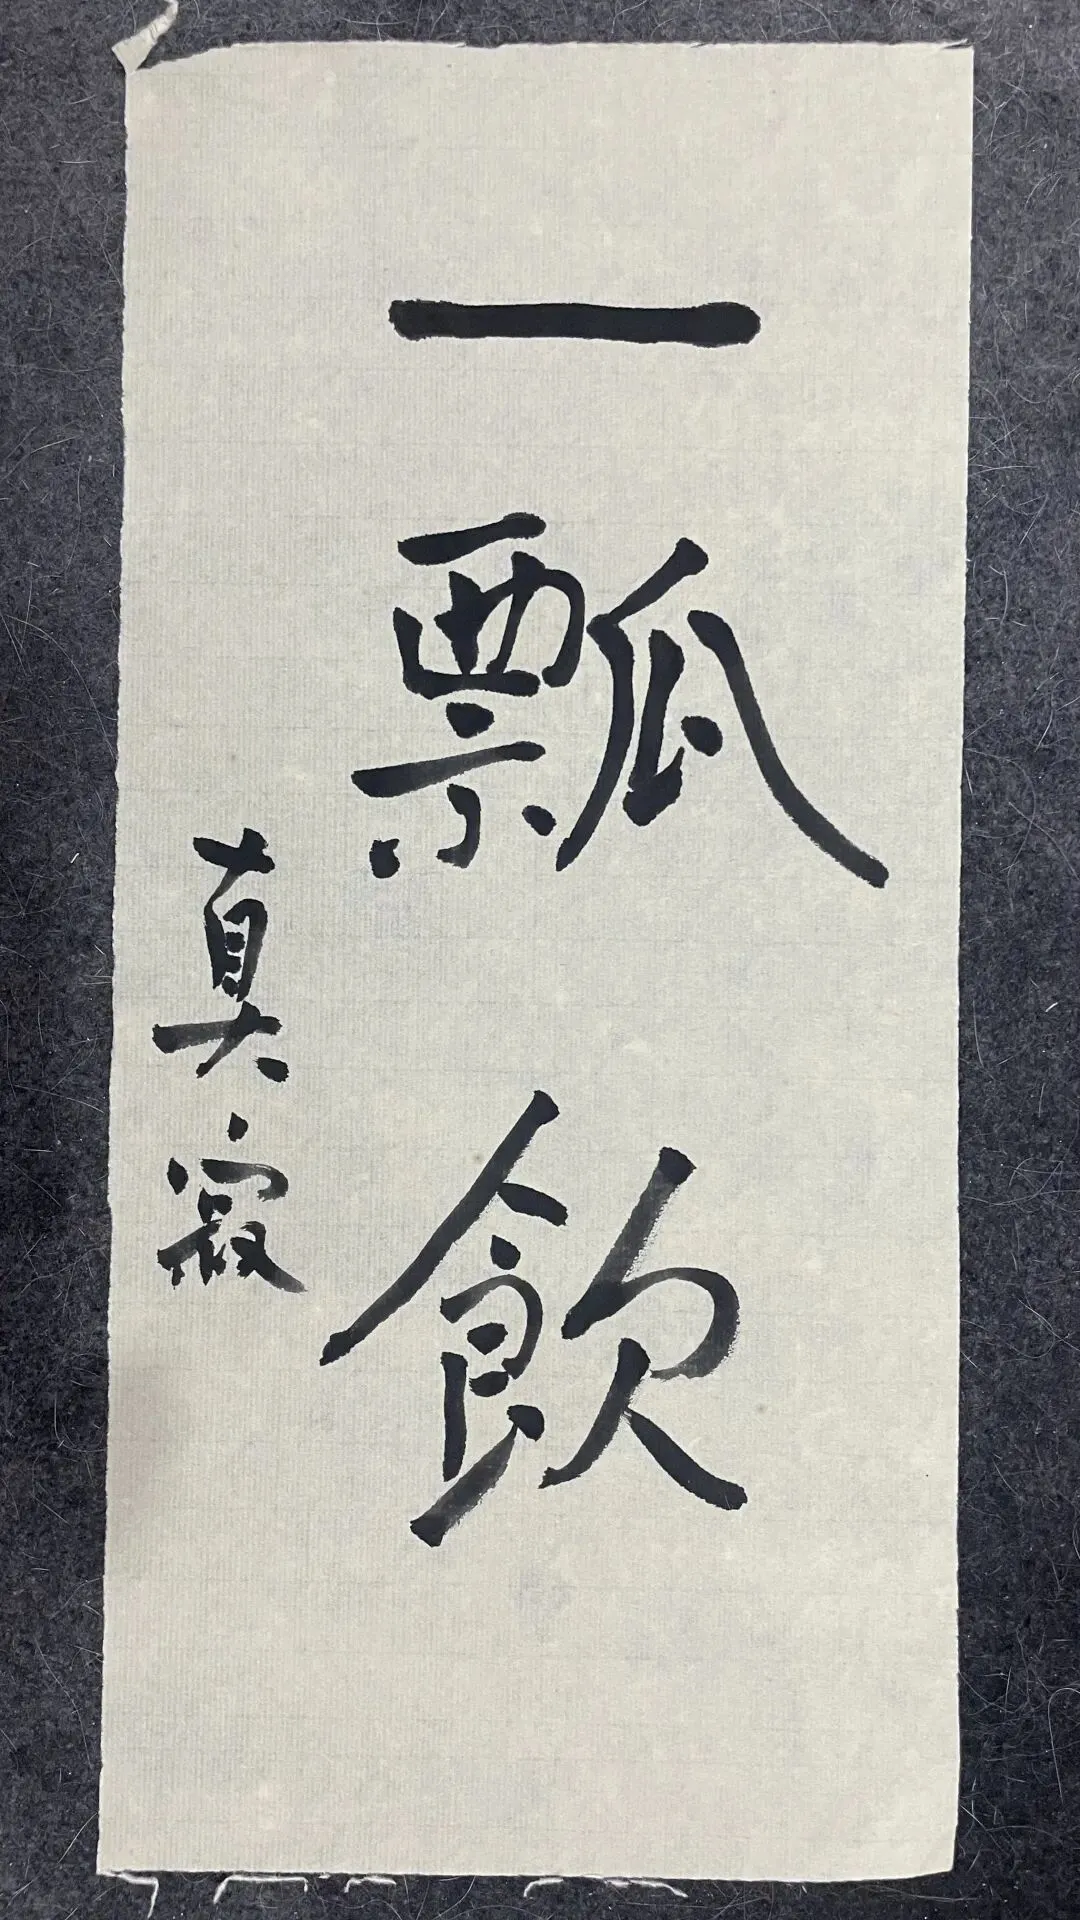 一瓢飲
真寂